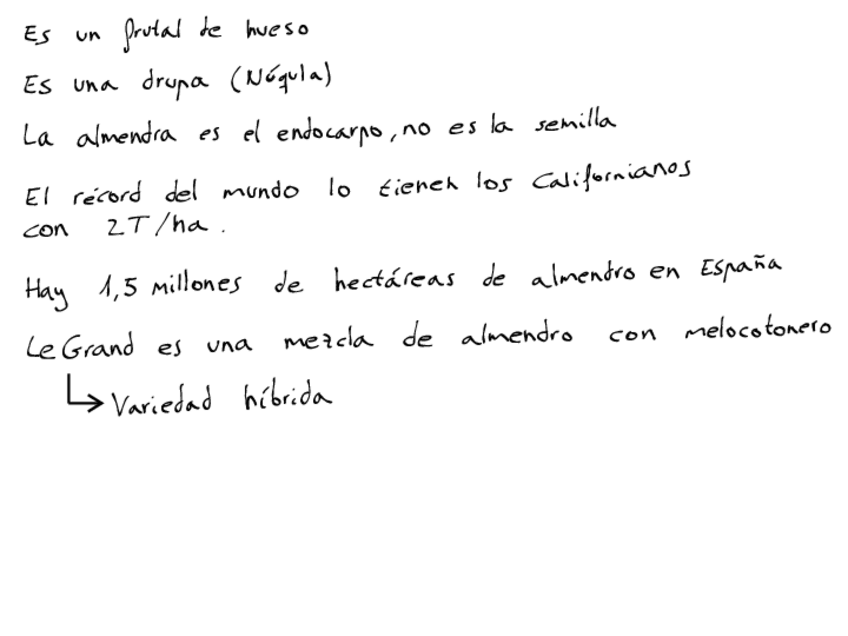 Es un frutal de hueso
Es una drupa (Núgula)
La almendra es el endocarpo, no es la semilla
El récord del mundo lo tienen los Californianos
con 2T/ha.
Hay 1,5 millones de hectáreas de almendro en España
Le Grand es una mezcla de almendro con melocotonero
↳ Variedad híbrida